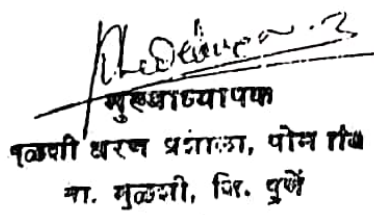 मुख्याध्यापक
मुळशी धरण प्रशाला, पोम गांव
ता. मुळशी, जि. पुणें